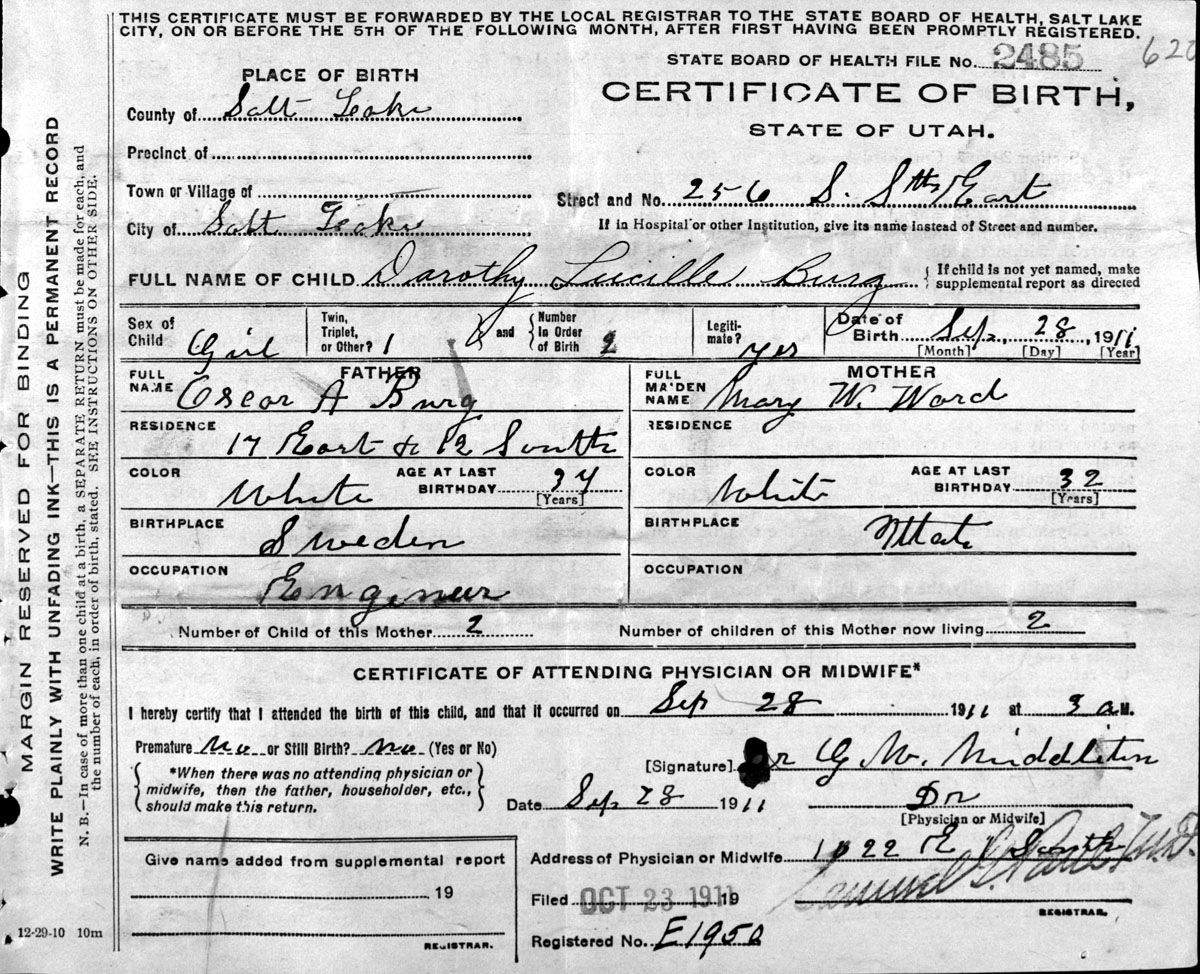 THIS CERTIFICATE MUST BE FORWARDED BY THE LOCAL REGISTRAR TO THE STATE BOARD OF HEALTH, SALT LAKE
CITY, ON OR BEFORE THE 5TH OF THE FOLLOWING MONTH, AFTER FIRST HAVING BEEN PROMPTLY REGISTERED.
STATE BOARD OF HEALTH FILE No. 2485
620
PLACE OF BIRTH
CERTIFICATE OF BIRTH,
STATE OF UTAH.
County of Salt Lake
Precinct of
Town or Village of
Street and No. 256 S. 8th East
City of Salt Lake
If in Hospital or other Institution, give its name instead of Street and number.
FULL NAME OF CHILD Dorothy Lucille Burg { If child is not yet named, make
supplemental report as directed
Sex of Child Girl Twin, Triplet, or Other? 1 } and { Number In Order of Birth 2 Legiti-mate? yes Date of Birth Sep. 28, 1911
[Month] [Day] [Year]
FATHER MOTHER
FULL NAME Oscar A Burg FULL MAIDEN NAME Mary W. Ward
RESIDENCE 17 East & 12 South RESIDENCE
COLOR White AGE AT LAST BIRTHDAY 34 [Years] COLOR White AGE AT LAST BIRTHDAY 32 [Years]
BIRTHPLACE Sweden BIRTHPLACE Utah
OCCUPATION Engineer OCCUPATION
Number of Child of this Mother 2 Number of children of this Mother now living 2
CERTIFICATE OF ATTENDING PHYSICIAN OR MIDWIFE*
I hereby certify that I attended the birth of this child, and that it occurred on Sep 28 1911 at 3 a M.
Premature No or Still Birth? No (Yes or No)
{ *When there was no attending physician or
midwife, then the father, householder, etc.,
should make this return. }
[Signature] Dr G. W. Middleton
Date Sep 28 1911 Dr
[Physician or Midwife]
Address of Physician or Midwife 1022 E South
Give name added from supplemental report
19
REGISTRAR.
Filed OCT 23 1911 19
REGISTRAR.
Registered No. E1950
12-29-10 10m
MARGIN RESERVED FOR BINDING
WRITE PLAINLY WITH UNFADING INK—THIS IS A PERMANENT RECORD
N. B.—In case of more than one child at a birth, a SEPARATE RETURN must be made for each, and
the number of each, in order of birth, stated. SEE INSTRUCTIONS ON OTHER SIDE.